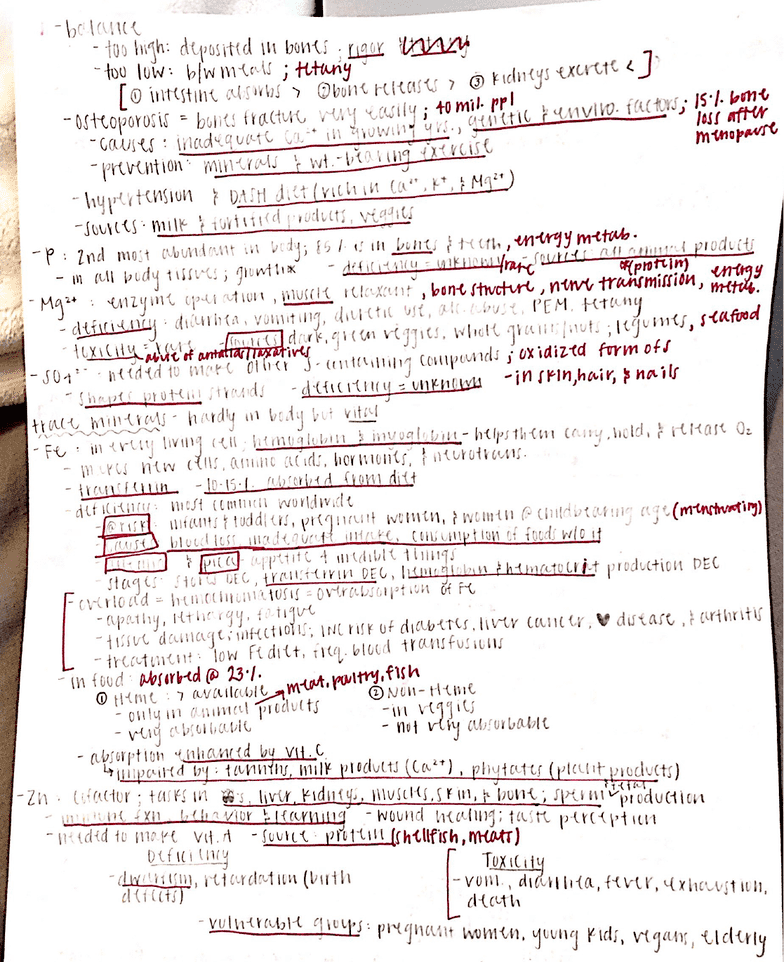 - balance
- too high: deposited in bones; rigor
- too low: b/w meals; tetany
[① intestine absorbs > ② bone releases > ③ kidneys excrete <]
- osteoporosis = bones fracture very easily; 40 mil. ppl
- causes: inadequate Ca²⁺ in growing yrs., genetic & enviro. factors; 15% bone loss after menopause
- prevention: minerals & wt.-bearing exercise
- hypertension & DASH diet (rich in Ca²⁺, K⁺, & Mg²⁺)
- sources: milk & fortified products, veggies
- P: 2nd most abundant in body; 85% is in bones & teeth, energy metab.
- in all body tissues; growth - deficiency = unknown/rare - sources: all animal products (protein)
- Mg²⁺: enzyme operation, muscle relaxant, bone structure, nerve transmission, energy metab.
- deficiency: diarrhea, vomiting, diuretic use, alc. abuse, PEM, tetany
- toxicity: rare - sources: dark, green veggies, whole grains/nuts; legumes, seafood
abuse of antacids/laxatives
- SO4²⁻: needed to make other S-containing compounds; oxidized form of S
- shapes protein strands - deficiency = unknown - in skin, hair, & nails
trace minerals - hardly in body but vital
- Fe: in every living cell; hemoglobin & myoglobin - helps them carry, hold, & release O₂
- makes new cells, amino acids, hormones, & neurotrans.
- transferrin - 10-15% absorbed from diet
- deficiency: most common worldwide
- @ risk: infants & toddlers, pregnant women, & women @ childbearing age (menstruating)
- cause: blood loss, inadequate intake, consumption of foods w/o it
- & pica: appetite 4 inedible things
- stages: stores DEC, transferrin DEC, hemoglobin & hematocrit production DEC
- overload = hemochromatosis = overabsorption of Fe
- apathy, lethargy, fatigue
- tissue damage; infections; INC risk of diabetes, liver cancer, ♥ disease, & arthritis
- treatment: low Fe diet, freq. blood transfusions
- in food: absorbed @ 23%
① Heme: > available → meat, poultry, fish ② Non-Heme
- only in animal products - in veggies
- very absorbable - not very absorbable
- absorption enhanced by vit. C
↳ impaired by: tannins, milk products (Ca²⁺), phytates (plant products)
- Zn: cofactor; tasks in liver, kidneys, muscles, skin, & bone; sperm production
- immune fxn, behavior & learning - wound healing; taste perception
- needed to make vit. A - source: protein (shellfish, meats)
Deficiency Toxicity
- dwarfism, retardation (birth defects) - vom., diarrhea, fever, exhaustion, death
- vulnerable groups: pregnant women, young kids, vegans, elderly